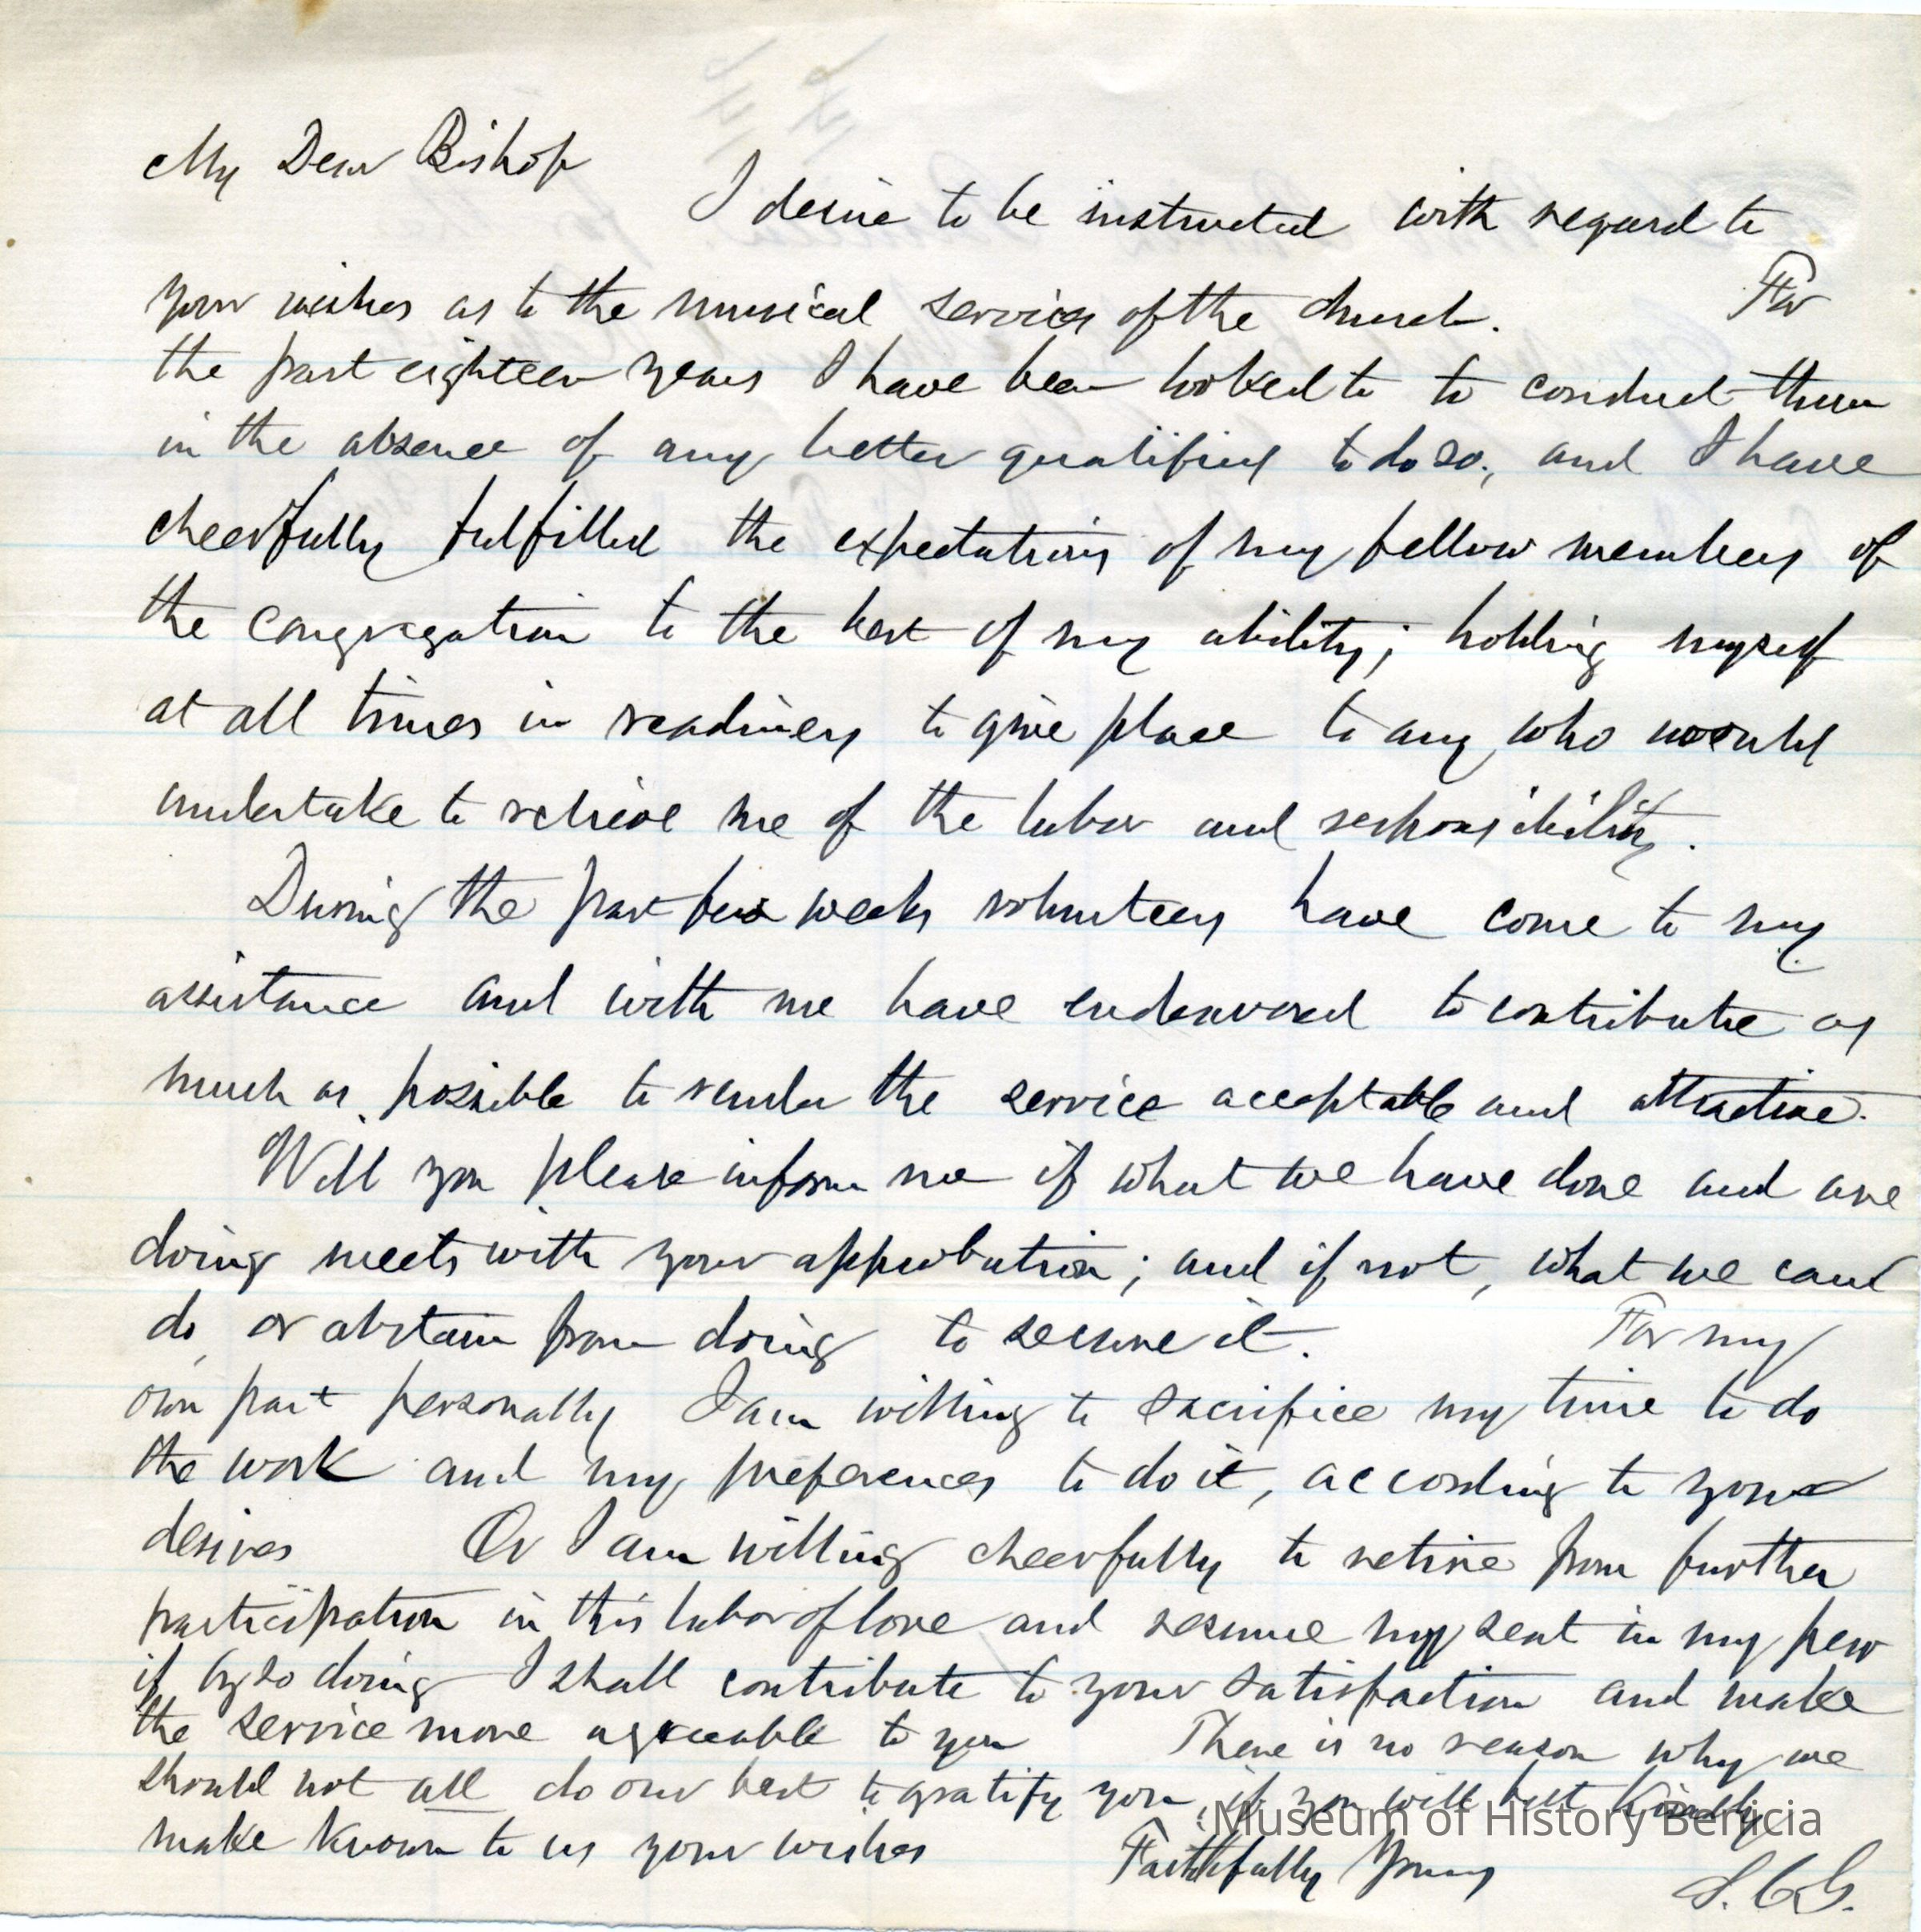 My Dear Bishop
I desire to be instructed with regard to
your wishes as to the musical services of the church. For
the past eighteen years I have been looked to to conduct them
in the absence of any better qualified to do so; and I have
cheerfully fulfilled the expectations of my fellow members of
the congregation to the best of my ability; holding myself
at all times in readiness to give place to any who would
undertake to relieve me of the labor and responsibility.
During the past few weeks volunteers have come to my
assistance and with me have endeavored to contribute as
much as possible to render the service acceptable and attractive.
Will you please inform me if what we have done and are
doing meets with your approbation; and if not, what we can
do, or abstain from doing to secure it. For my
own part personally I am willing to sacrifice my time to do
the work and my preferences to do it, according to your
desires Or I am willing cheerfully to retire from further
participation in this labor of love and resume my seat in my pew
if by so doing I shall contribute to your satisfaction and make
the service more agreeable to you There is no reason why we
should not all do our best to gratify you, if you will but kindly
make known to us your wishes
Faithfully Yours
Museum of History Benicia